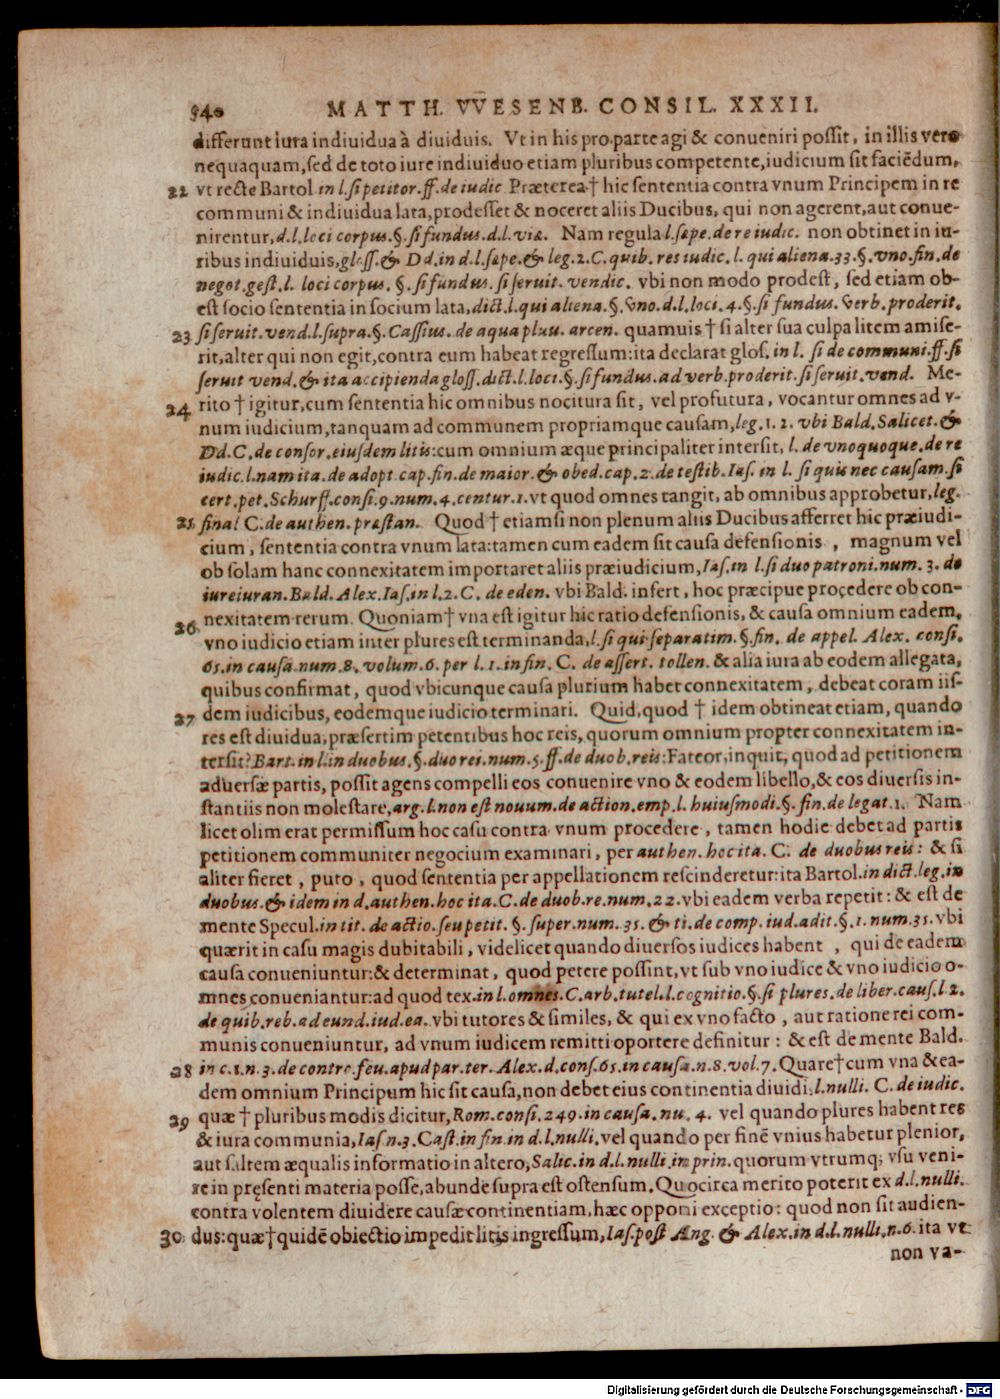 340
MATTH. VVESENB. CONSIL. XXXII.
differunt iura indiuidua à diuiduis. Vt in his pro parte agi & conueniri possit, in illis vero
nequaquam, sed de toto iure indiuiduo etiam pluribus competente, iudicium sit faciēdum,
22 vt recte Bartol in l. si petitor. ff. de iudic. Præterea † hic sententia contra vnum Principem in re
communi & indiuidua lata, prodesset & noceret aliis Ducibus, qui non agerent, aut conue-
nirentur, d. l. loci corpus. §. si fundus. d. l. via. Nam regula l. sæpe. de re iudic. non obtinet in iu-
ribus indiuiduis, gloss. & Dd. in d. l. sæpe. & leg. 2. C. quib. res iudic. l. qui aliena. 33. §. vno. fin. de
negot. gest. l. loci corpus. §. si fundus. si seruit. vendic. vbi non modo prodest, sed etiam ob-
est socio sententia in socium lata, dict. l. qui aliena. §. vno. d. l. loci. 4. §. si fundus. verb. proderit.
23 si seruit. vend. l. supra. §. Cassius. de aqua pluu. arcen. quamuis † si alter sua culpa litem amise-
rit, alter qui non egit, contra eum habeat regressum: ita declarat glos. in l. si de communi. ff. si
seruit vend. & ita accipienda gloss. dict. l. loci. §. si fundus. ad verb. proderit. si seruit. vend. Me-
24 rito † igitur, cum sententia hic omnibus nocitura sit, vel profutura, vocantur omnes ad v-
num iudicium, tanquam ad communem propriamque causam, leg. 1. 2. vbi Bald. Salicet. &
Dd. C. de consor. eiusdem litis: cum omnium æque principaliter intersit, l. de vnoquoque. de re
iudic. l. nam ita. de adopt. cap. fin. de maior. & obed. cap. 2. de testib. Ias. in l. si quis nec causam. si
cert. pet. Schurff. consi. 9. num. 4. centur. 1. vt quod omnes tangit, ab omnibus approbetur, leg.
25 final C. de authen. præstan. Quod † etiamsi non plenum aliis Ducibus afferret hic præiudi-
cium, sententia contra vnum lata: tamen cum eadem sit causa defensionis, magnum vel
ob solam hanc connexitatem importaret aliis præiudicium, Ias. in l. si duo patroni. num. 3. de
iureiuran. Bald. Alex. Ias. in l. 2. C. de eden. vbi Bald. infert, hoc præcipue procedere ob con-
26 nexitatem rerum. Quoniam † vna est igitur hic ratio defensionis, & causa omnium eadem,
vno iudicio etiam inter plures est terminanda, l. si qui separatim. §. fin. de appel. Alex. consi.
65. in causa. num. 8. volum. 6. per l. 1. in fin. C. de assert. tollen. & alia iura ab eodem allegata,
quibus confirmat, quod vbicunque causa plurium habet connexitatem, debeat coram iis-
27 dem iudicibus, eodemque iudicio terminari. Quid, quod † idem obtineat etiam, quando
res est diuidua, præsertim petentibus hoc reis, quorum omnium propter connexitatem in-
tersit? Bart. in l. in duobus. §. duo rei. num. 5. ff. de duob. reis: Fateor, inquit, quod ad petitionem
aduersæ partis, possit agens compelli eos conuenire vno & eodem libello, & eos diuersis in-
stantiis non molestare, arg. l. non est nouum. de action. emp. l. huiusmodi. §. fin. de legat. 1. Nam
licet olim erat permissum hoc casu contra vnum procedere, tamen hodie debet ad partis
petitionem communiter negocium examinari, per authen. hoc ita. C. de duobus reis: & si
aliter fieret, puto, quod sententia per appellationem rescinderetur: ita Bartol. in dict. leg. in
duobus. & idem in d. authen. hoc ita. C. de duob. re. num. 22. vbi eadem verba repetit: & est de
mente Specul. in tit. de actio. seu petit. §. super. num. 35. & ti. de comp. iud. adit. §. 1. num. 35. vbi
quærit in casu magis dubitabili, videlicet quando diuersos iudices habent, qui de eadem
causa conueniuntur: & determinat, quod petere possint, vt sub vno iudice & vno iudicio o-
mnes conueniantur: ad quod tex. in l. omnes. C. arb. tutel. l. cognitio. §. si plures. de liber. caus. l 2.
de quib. reb. ad eund. iud. ea. vbi tutores & similes, & qui ex vno facto, aut ratione rei com-
munis conueniuntur, ad vnum iudicem remitti oportere definitur: & est de mente Bald.
28 in c. 1. n. 3. de contro. feu. apud par. ter. Alex. d. cons. 65. in causa. n. 8. vol. 7. Quare † cum vna & ea-
dem omnium Principum hic sit causa, non debet eius continentia diuidi. l. nulli. C. de iudic.
29 quæ † pluribus modis dicitur, Rom. consi. 249. in causa. nu. 4. vel quando plures habent res
& iura communia, Ias. n. 3. Cast. in fin. in d. l. nulli. vel quando per finē vnius habetur plenior,
aut saltem æqualis informatio in altero, Salic. in d. l. nulli. in prin. quorum vtrumq; vsu veni-
re in pręsenti materia posse, abunde supra est ostensum. Quocirca merito poterit ex d. l. nulli.
contra volentem diuidere causæ continentiam, hæc opponi exceptio: quod non sit audien-
30 dus: quæ † quidē obiectio impedit litis ingressum, Ias. post Ang. & Alex. in d. l. nulli. n. 6. ita vt
non va-
Digitalisierung gefördert durch die Deutsche Forschungsgemeinschaft - DFG